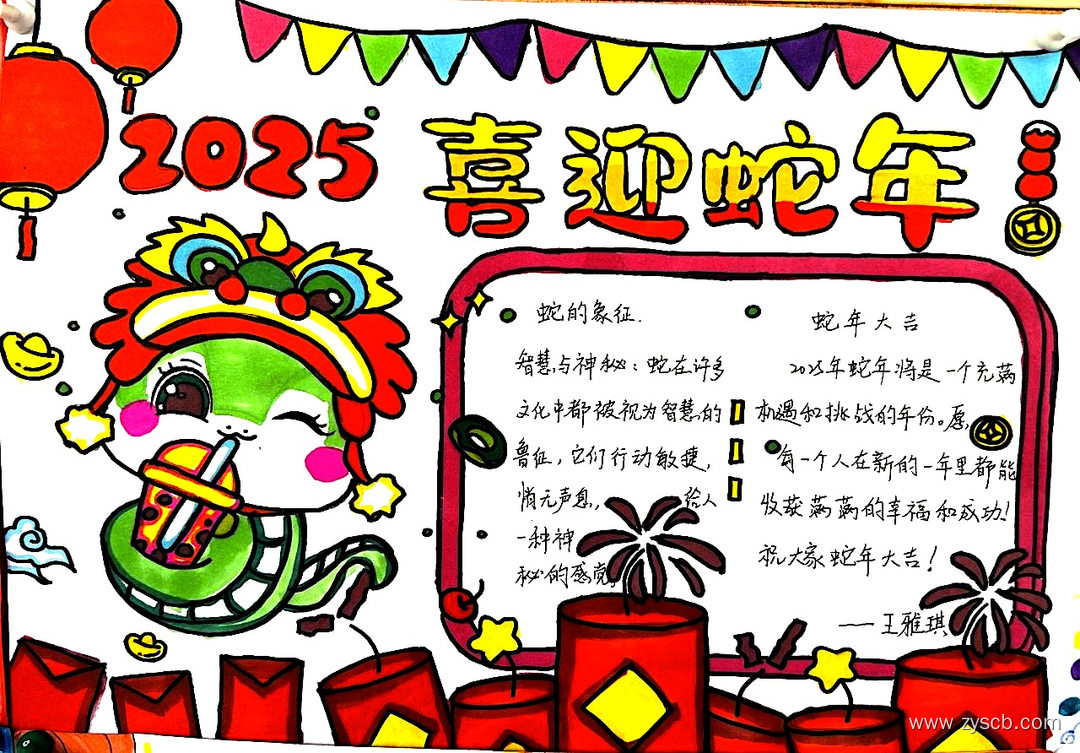 2025 喜迎蛇年
蛇的象征.
智慧与神秘：蛇在许多
文化中都被视为智慧的
鲁征，它们行动敏捷，
悄无声息， 给人
一种神
秘的感觉
蛇年大吉
2025年蛇年将是一个充满
机遇和挑战的年份。愿，
每一个人在新的一年里都能
收获满满的幸福和成功！
祝大家蛇年大吉！
——王雅琪
www.zyscb.com